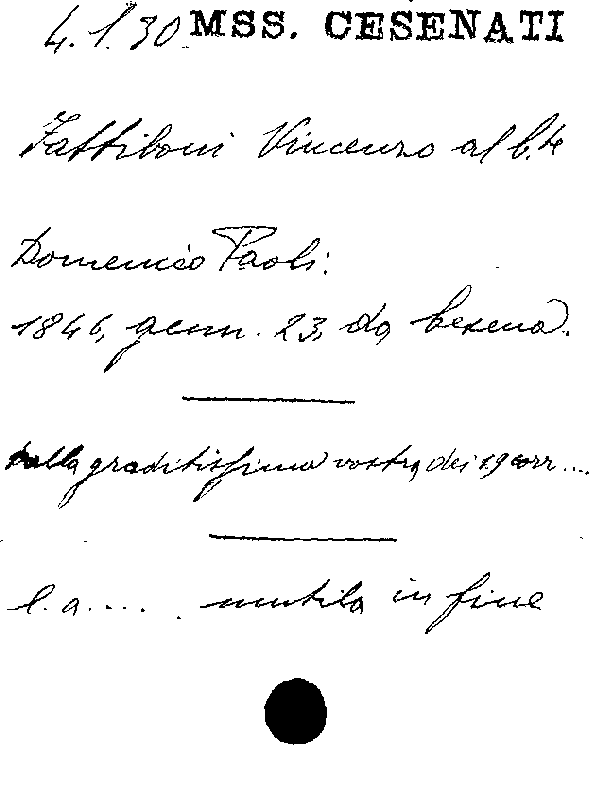 4.1.30 MSS. CESENATI
Fattiboni Vincenzo al C.te
Domenico Paoli:
1846, genn. 23, da Cesena.
dalla graditissima vostra dei 19 corr....
l. a.... . mutila in fine